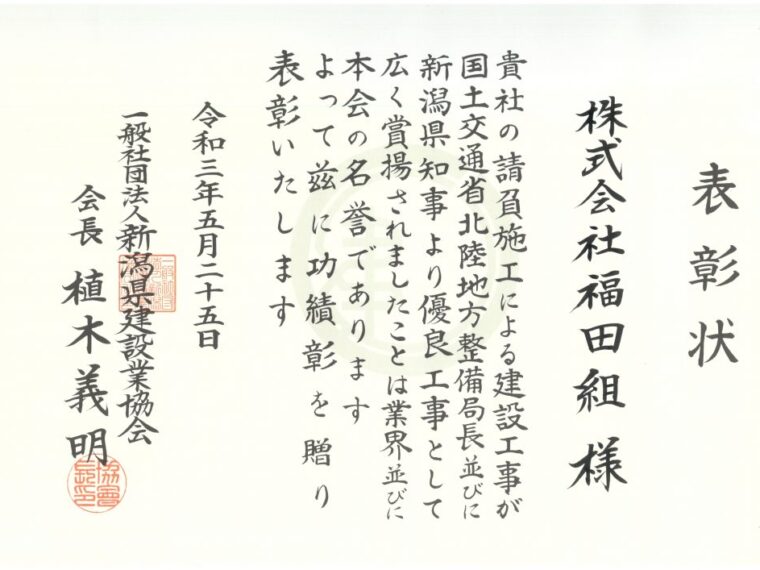 表彰状
株式会社福田組 様
貴社の請負施工による建設工事が
国土交通省北陸地方整備局長並びに
新潟県知事より優良工事として
広く賞揚されましたことは業界並びに
本会の名誉であります
よって茲に功績彰を贈り
表彰いたします
令和三年五月二十五日
一般社団法人新潟県建設業協会
会長 植木義明